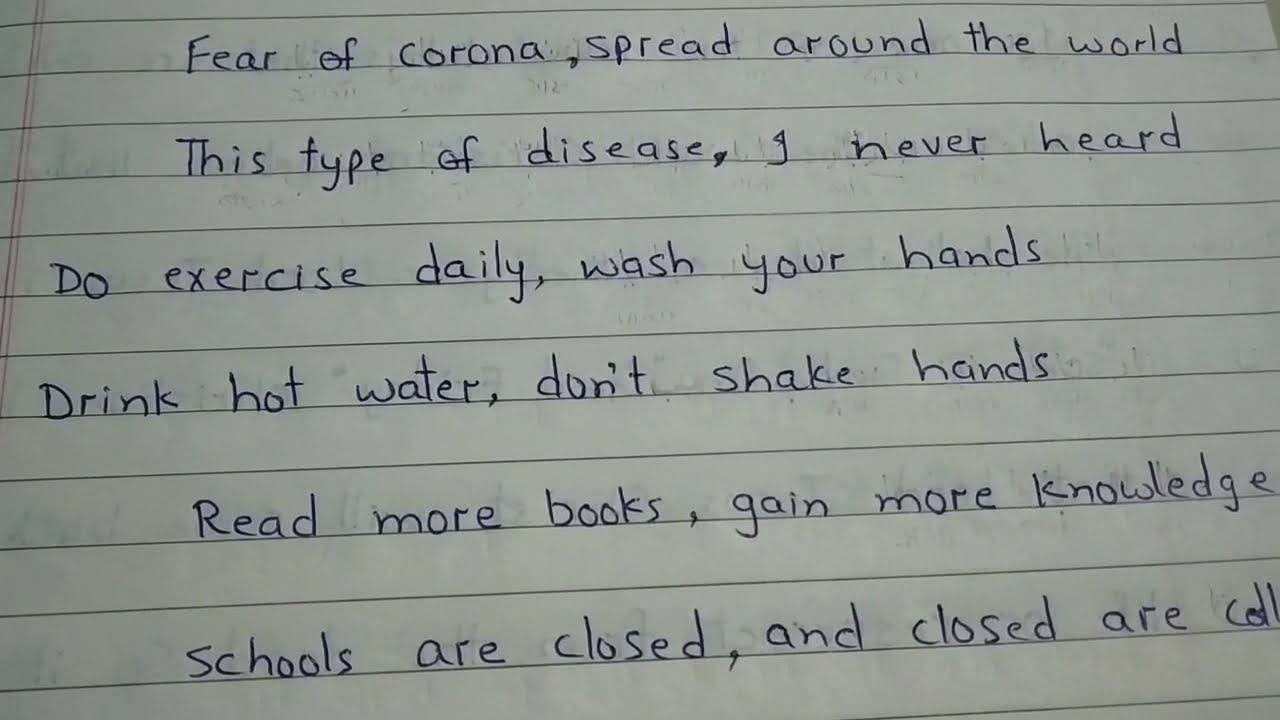 Fear of corona, spread around the world
This type of disease, I never heard
Do exercise daily, wash your hands
Drink hot water, don't shake hands
Read more books, gain more knowledge
Schools are closed, and closed are